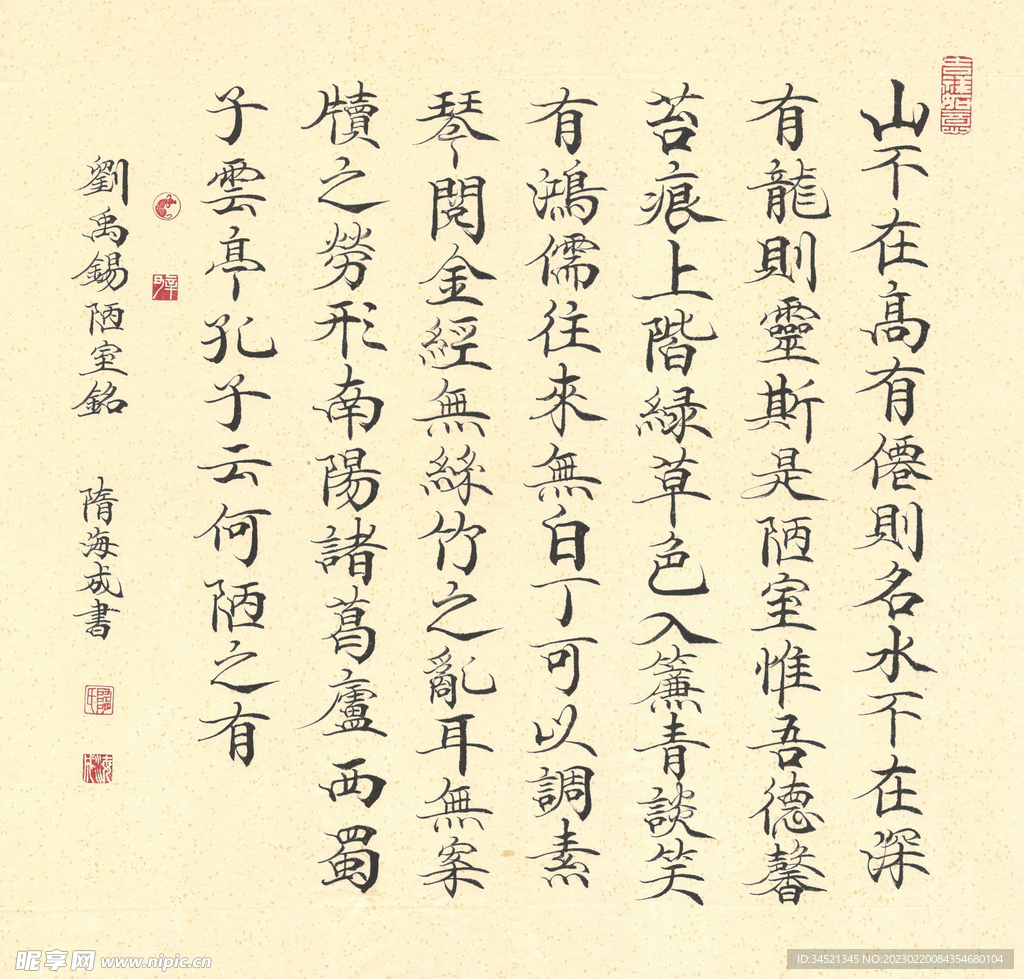 山不在髙有僊則名水不在深
有龍則靈斯是陋室惟吾德馨
苔痕上階緑草色入簾青談笑
有鴻儒往來無白丁可以調素
琴閱金經無絲竹之亂耳無案
牘之勞形南陽諸葛廬西蜀
子雲亭孔子云何陋之有
劉禹錫陋室銘 隋海成書
昵享网 www.nipic.cn
ID:34521345 NO:20230220084354680104